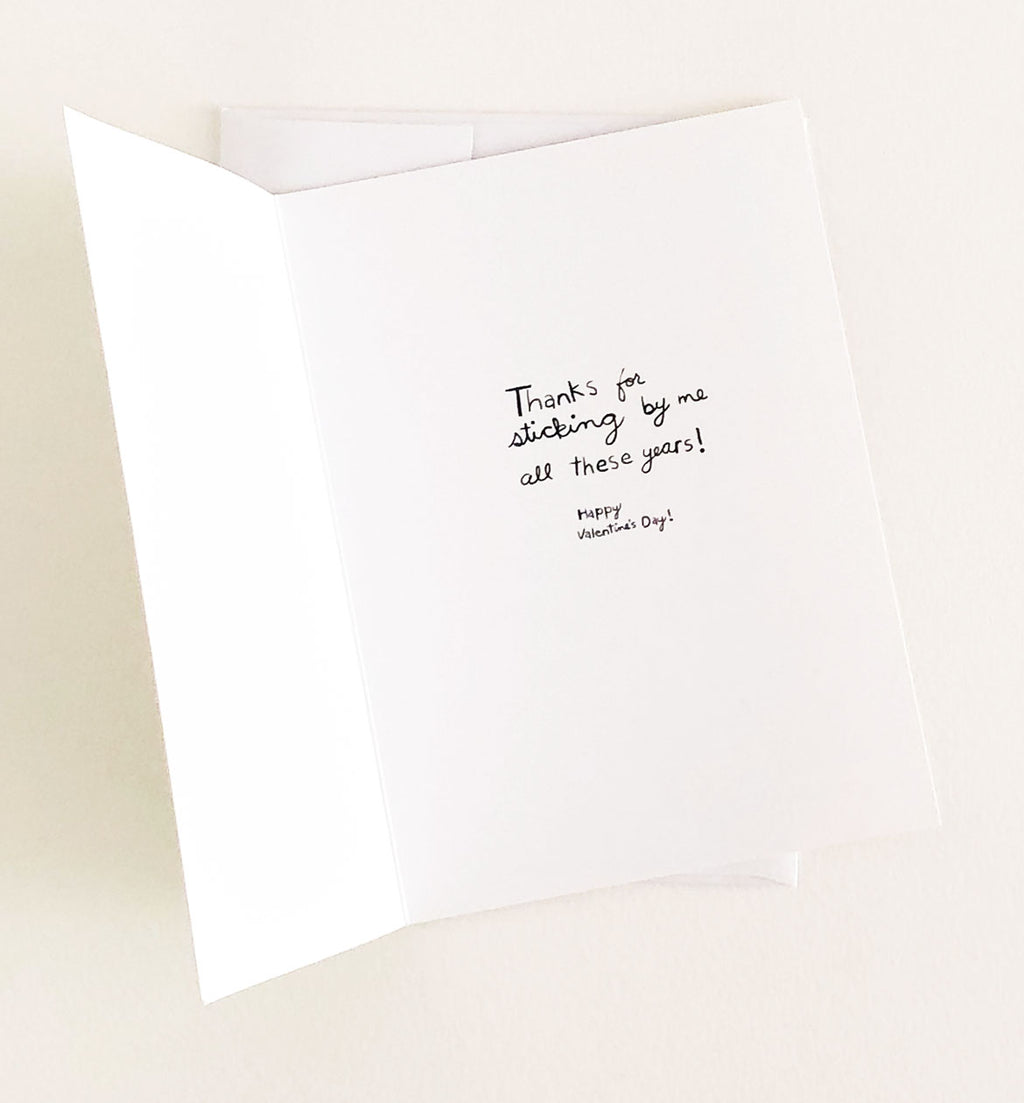 Thanks for
sticking by me
all these years!
Happy
Valentine's Day!